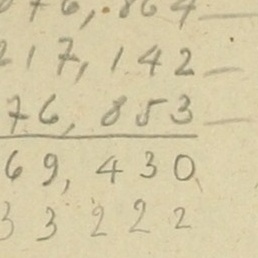 76,.864
217,142
76,853
69,430
33222